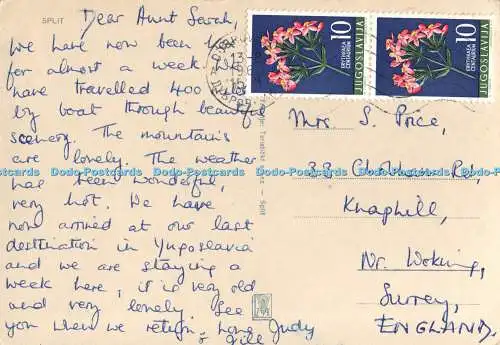 SPLIT
Dear Aunt Sarah,
We have now been
for almost a week
have travelled 400
by boat through beautiful
scenery. The mountains
are lovely. The weather
has been wonderful,
very hot. We have
now arrived at our last
destination in Yugoslavia
and we are staying a
week here, it is very old
and very lovely. See
you when we return. Love Judy
& Jill
10
ERYTHRAEA CENTAURIUM
JUGOSLAVIJA
10
ERYTHRAEA CENTAURIUM
JUGOSLAVIJA
Mrs S. Price,
Rd,
Knaphill,
Nr. Woking,
Surrey,
ENGLAND.
Split
Dodo-Postcards Dodo-Postcards Dodo-Postcards Dodo-Postcards